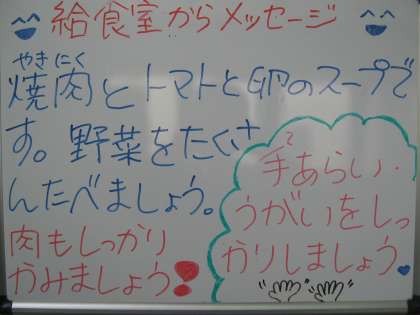 給食室からメッセージ
やきにく
焼肉とトマトと卵のスープで
す。野菜をたくさ
んたべましょう。
肉もしっかり
かみましょう!
て
手あらい・
うがいをしっ
かりしましょう。